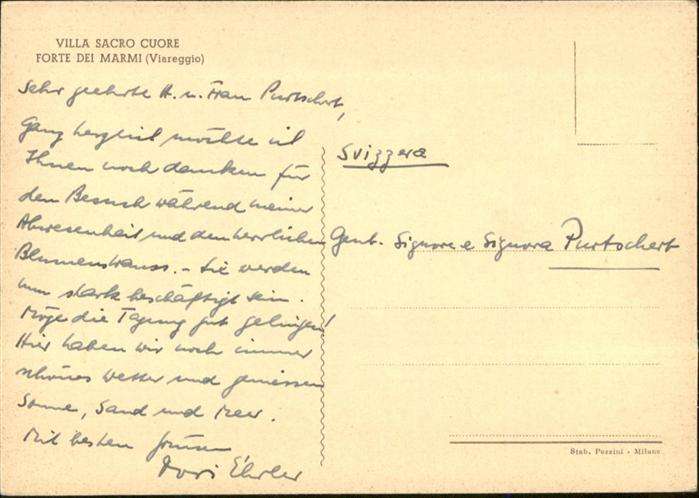 VILLA SACRO CUORE
FORTE DEI MARMI (Viareggio)
Sehr geehrte H. u. Frau Purtschert,
Ganz herzlich möchte ich
Ihnen noch danken für
den Besuch während meiner
Abwesenheit und den herrlichen
Blumenstrauss. - Sie werden
nun stark beschäftigt sein.
Möge die Tagung gut gelingen!
Hier haben wir noch immer
schönes Wetter und geniessen
Sonne, Sand und Meer.
Mit besten Grüssen
Dori Ehrler
Svizzera
Gent. Signore e Signora Purtschert
Stab. Pezzini - Milano